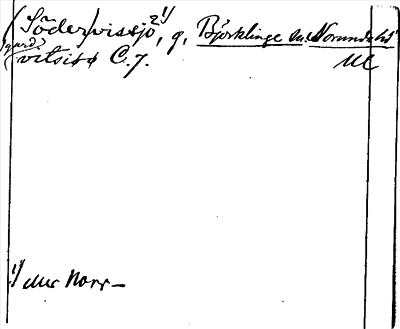 (Söder)vissjö, ¹⁾ g, Björklinge sn. Norunda hd
gård? vitsi C.7. Ul
¹⁾ eller Norr–